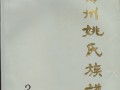 州姚氏族譜
2